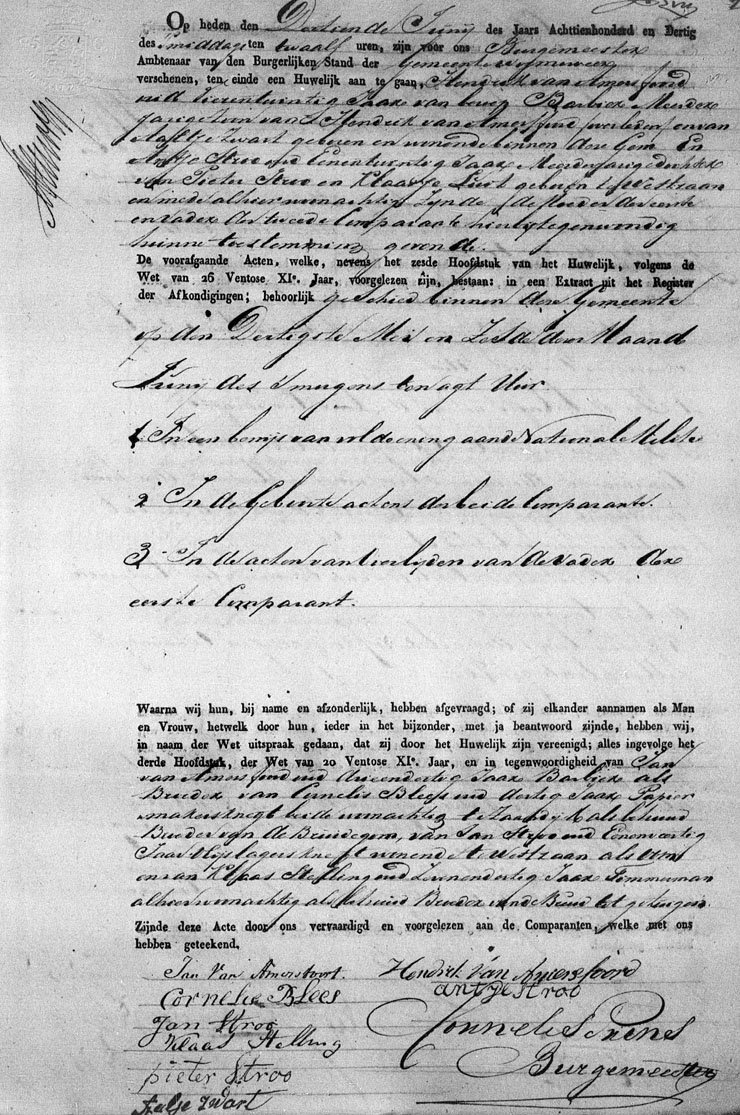 Op heden den Dertiende Junij des Jaars Achttienhonderd en Dertig
des smiddags ten twaalf uren, zijn voor ons Burgemeester
Ambtenaar van den Burgerlijken Stand der Gemeente
verschenen, ten einde een Huwelijk aan te gaan, Hendrick van Amersfoord
oud Jaar Barbier Meerder
Jarige Zoon van Hendrick van Amersfoord overleden en van
Aaltje Zwart geboren en wonende binnen dese Gem En
Antje Stroo oud Eenentwintig Jaar Meerderjarige dochter
van Pieter Stroo en Klaasje geboren te Westzaan
en mede alhier woonachtig Zijnde de Moeder der eerste
en vader der tweede Comparante hierbij tegenwoordig
hunne toestemming gevende.
De voorafgaande Acten, welke, nevens het zesde Hoofdstuk van het Huwelijk, volgens de
Wet van 26 Ventose XIe. Jaar, voorgelezen zijn, bestaan: in een Extract uit het Register
der Afkondigingen; behoorlijk geschied binnen dese Gemeente
op den Dertigste Mei en Zesde deser Maand
Junij des smorgens ten agt Uur
1 In een bewijs van voldoening aan de Nationale Melitie
2 In de Geboorte actens der beide Comparante.
3 In de acten van overlijden van de vader der
eerste Comparant.
Waarna wij hun, bij name en afzonderlijk, hebben afgevraagd; of zij elkander aannamen als Man
en Vrouw, hetwelk door hun, ieder in het bijzonder, met ja beantwoord zijnde, hebben wij,
in naam der Wet uitspraak gedaan, dat zij door het Huwelijk zijn vereenigd; alles ingevolge het
derde Hoofdstuk, der Wet van 20 Ventose XIe. Jaar, en in tegenwoordigheid van Jan
van Amersfoord oud Drieendertig Jaar Barbier als
Broeder van Cornelis Blees oud dertig Jaar Papier
makersknegt beide woonachtig te Zaandijk als behuwd
Broeder van de Bruidegom, van Jan Stroo oud Eenenveertig
Jaar knegt wonende te Westzaan als Oom
en van Klaas Stelling oud Zevenendertig Jaar Timmerman
alhier woonachtig als behuwd Broeder van de Bruid tot getuigen.
Zijnde deze Acte door ons vervaardigd en voorgelezen aan de Comparanten, welke met ons
hebben geteekend,
Jan Van Amersfoort. Hendrick Van Amersfoord
Cornelis Blees Antje Stroo
Jan Stroo
Klaas Stelling Cornelis
pieter Stroo Burgemeester
Aaltje Zwart